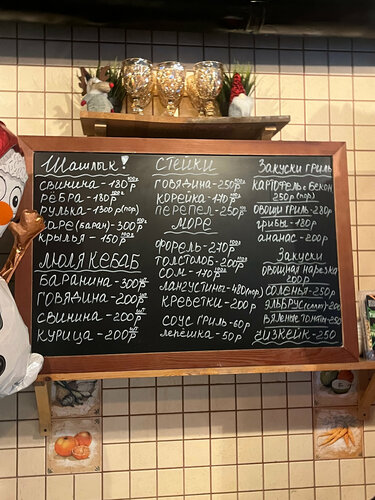 Шашлык!
свинина - 180 100г Р
рёбра - 180 100г Р
рулька - 1300 р(пор)
каре (баран) - 300 100г Р
крылья - 150 100г Р
ЛЮЛЯ КЕБАБ
баранина - 300 шт Р
говядина - 200 шт Р
свинина - 200 шт Р
курица - 200 шт Р
СТЕЙКИ
говядина - 250 100г Р
корейка - 170 100г Р
перепел - 250 100г Р
МОРЕ
форель - 270 100г Р
толстолоб - 200 100г Р
сом - 170 100г Р
лангустины - 480 (пор)
креветки - 200 р
соус гриль - 60 р
лепёшка - 50 р
Закуски гриль
картофель с бекон
250 р (пор)
овощи гриль - 280 р
грибы - 180 р
ананас - 200 р
Закуски
овощная нарезка
200 р
соленья - 250 р
вяленые томаты - 250
чизкейк - 250